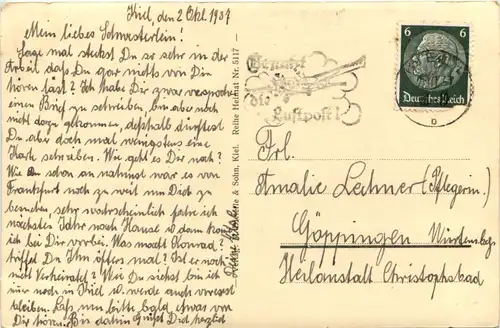 Kiel, den 2 Okt. 1937
Mein liebes Schwesterlein!
Sage mal steckst Du so sehr in der
Arbeit dass Du gar nichts von Dir
hören läst? Ich habe Dir zwar versprochen
einen Brief zu schreiben bin aber noch
nicht dazu gekommen, deshalb dürftest
Du aber doch mal wenigstens eine
Karte schreiben. Wie geht es Dir noch?
Wie schon an nahmst war es von
Frankfurt noch zu weit um Dich zu
besuchen, sehr wahrscheinlich fahre ich
nächstes Jahr nach Hause u. dann komme
ich bei Dir vorbei. Was macht Konrad?
triffst Du Ihn öfters mal? Ist er noch
nicht Verheiratet? Wie Du siehst bin ich
nur noch in Kiel u. werde auch vorerst
bleiben. Lass nun bitte bald etwas von
Dir hören! Bis dahin Grüßt Dich herzlich
& Sohn, Kiel. Reihe Heimat Nr. 5117
Benutzt
die
Luftpost!
6 6
Deutsches Reich
Frl.
Amalie Lechner (Pflegerin)
Göppingen Württembg.
Heilanstalt Christophsbad